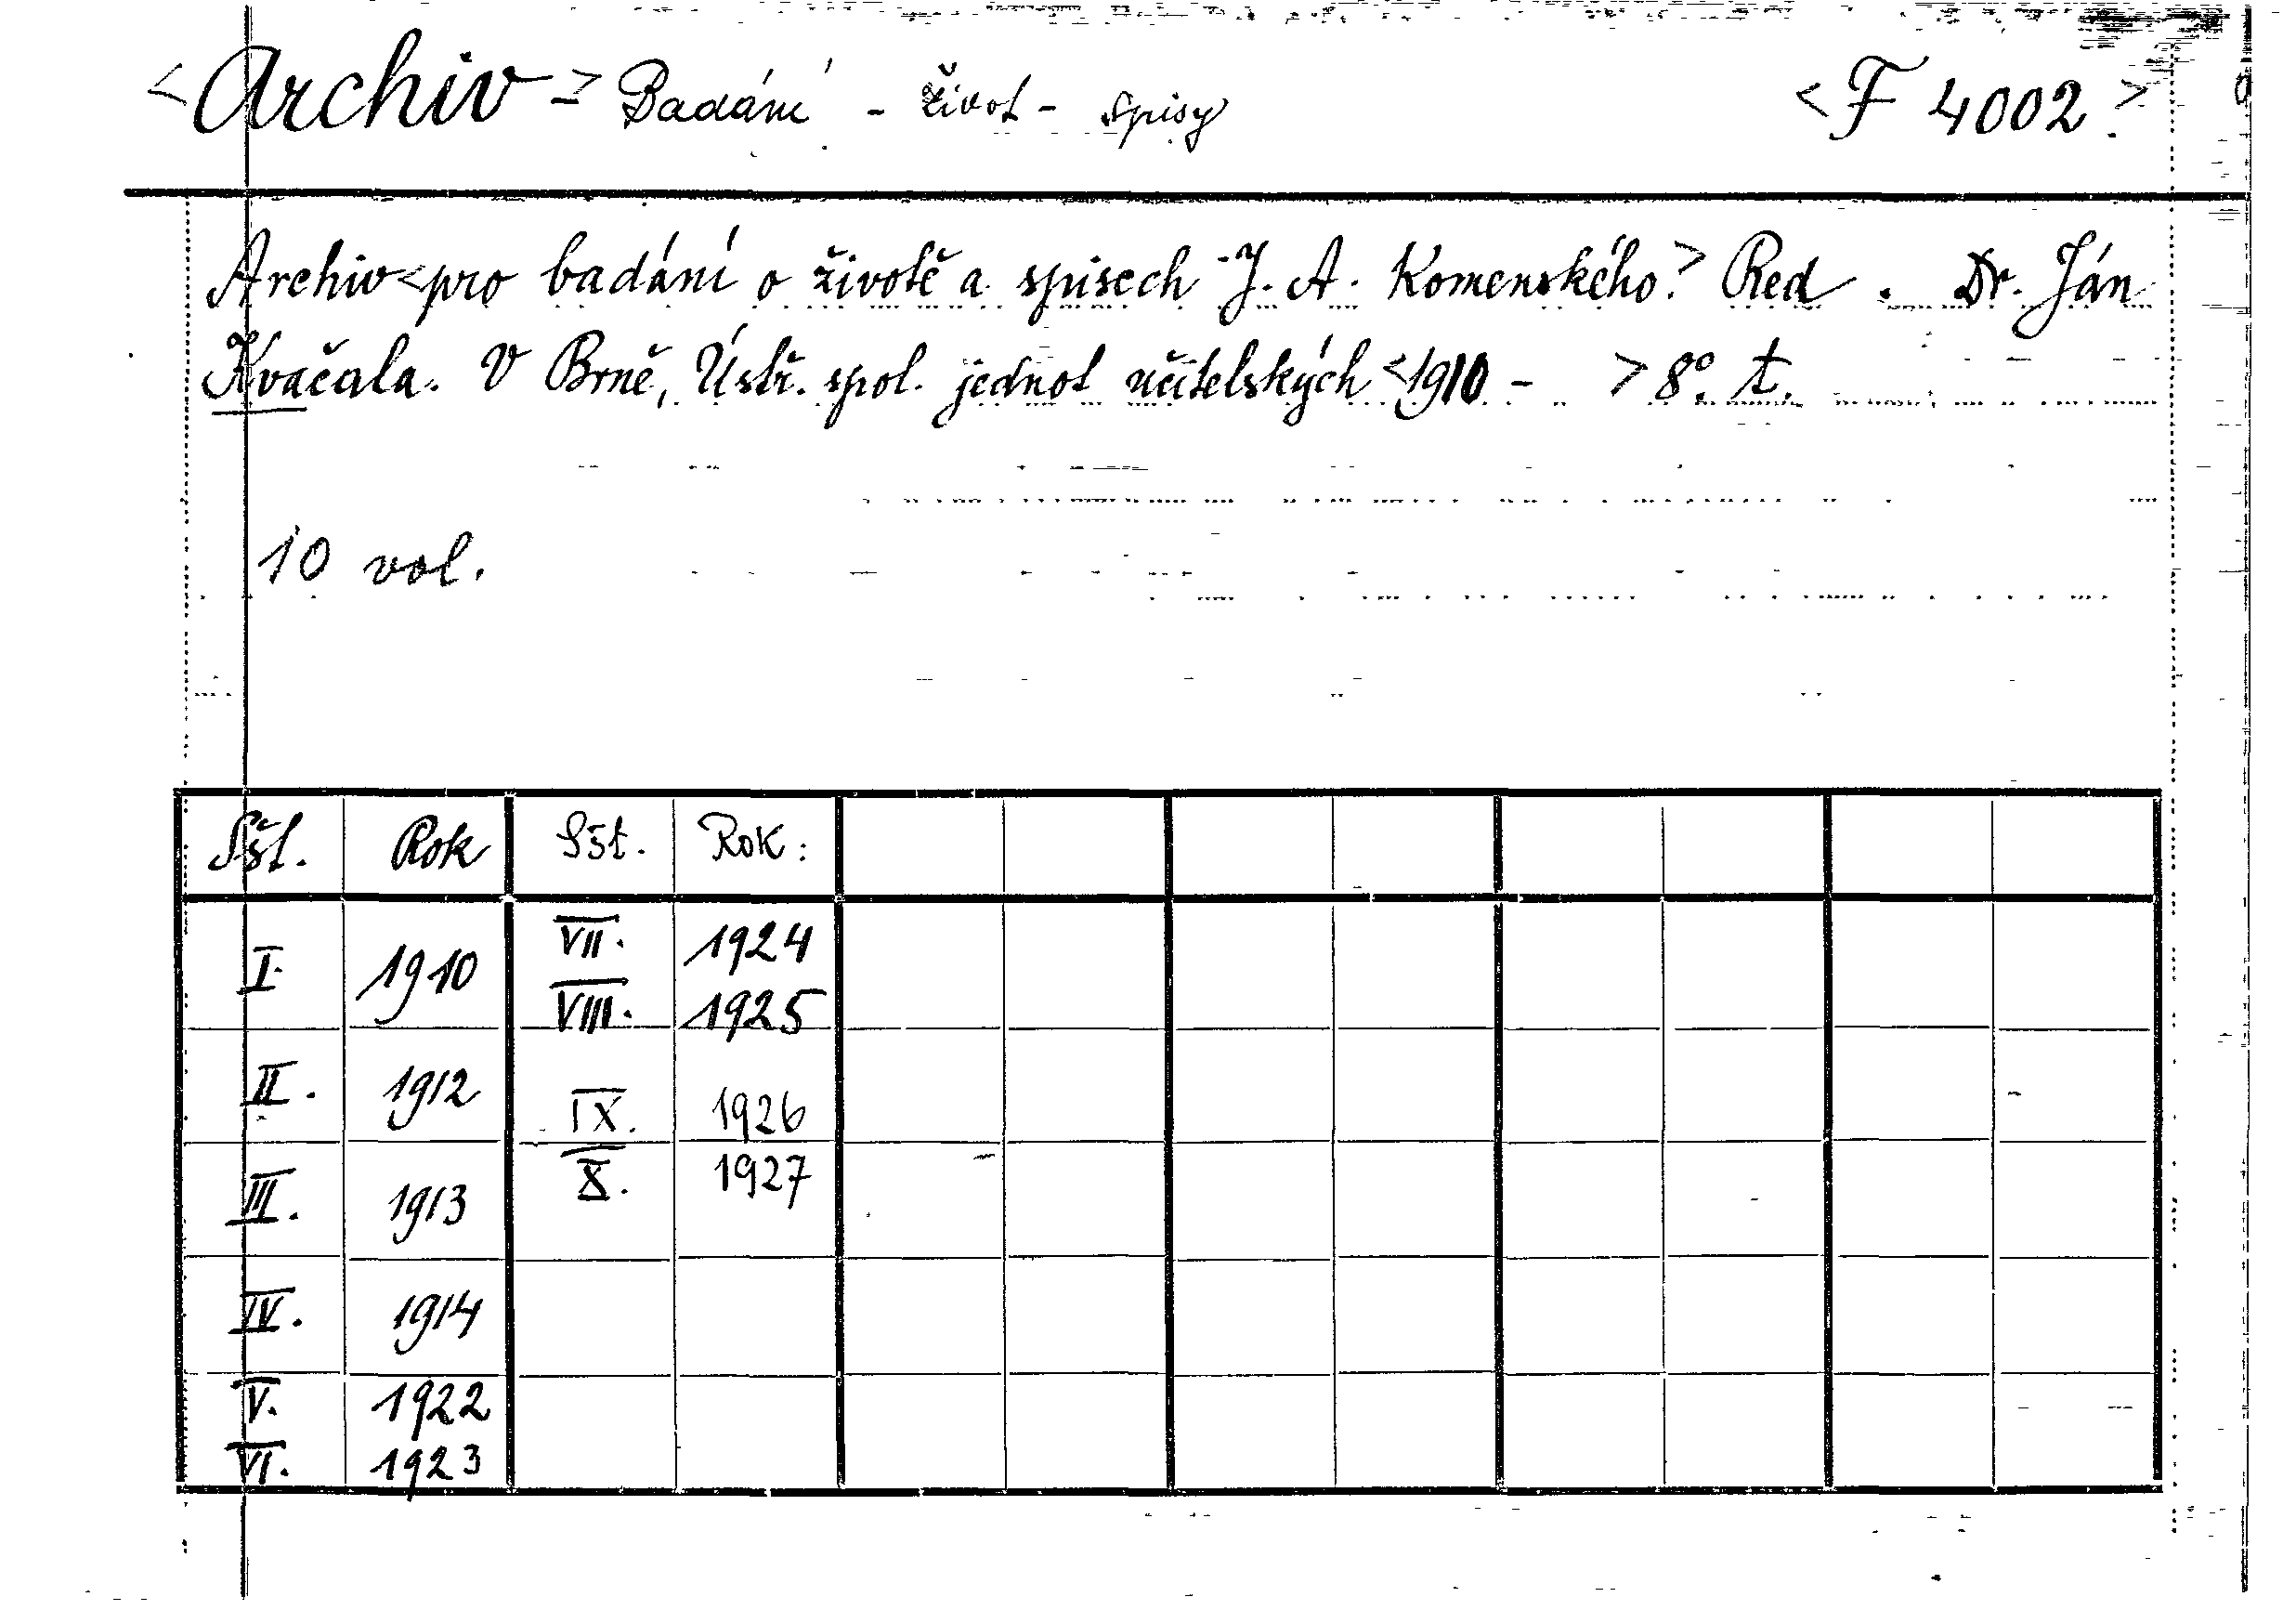 <Archiv-> Badání - život - spisy <F 4002>
Archiv <pro badání o životě a spisech J. A. Komenského.> Red. Dr. Ján
Kvačala. V Brně, Ústř. spol. jednot učitelských <1910 - > 8°. t.
10 vol.
Sšt. Rok Sšt. Rok:
I. 1910 VII. 1924
VIII. 1925
II. 1912 IX. 1926
III. 1913 X. 1927
IV. 1914
V. 1922
VI. 1923